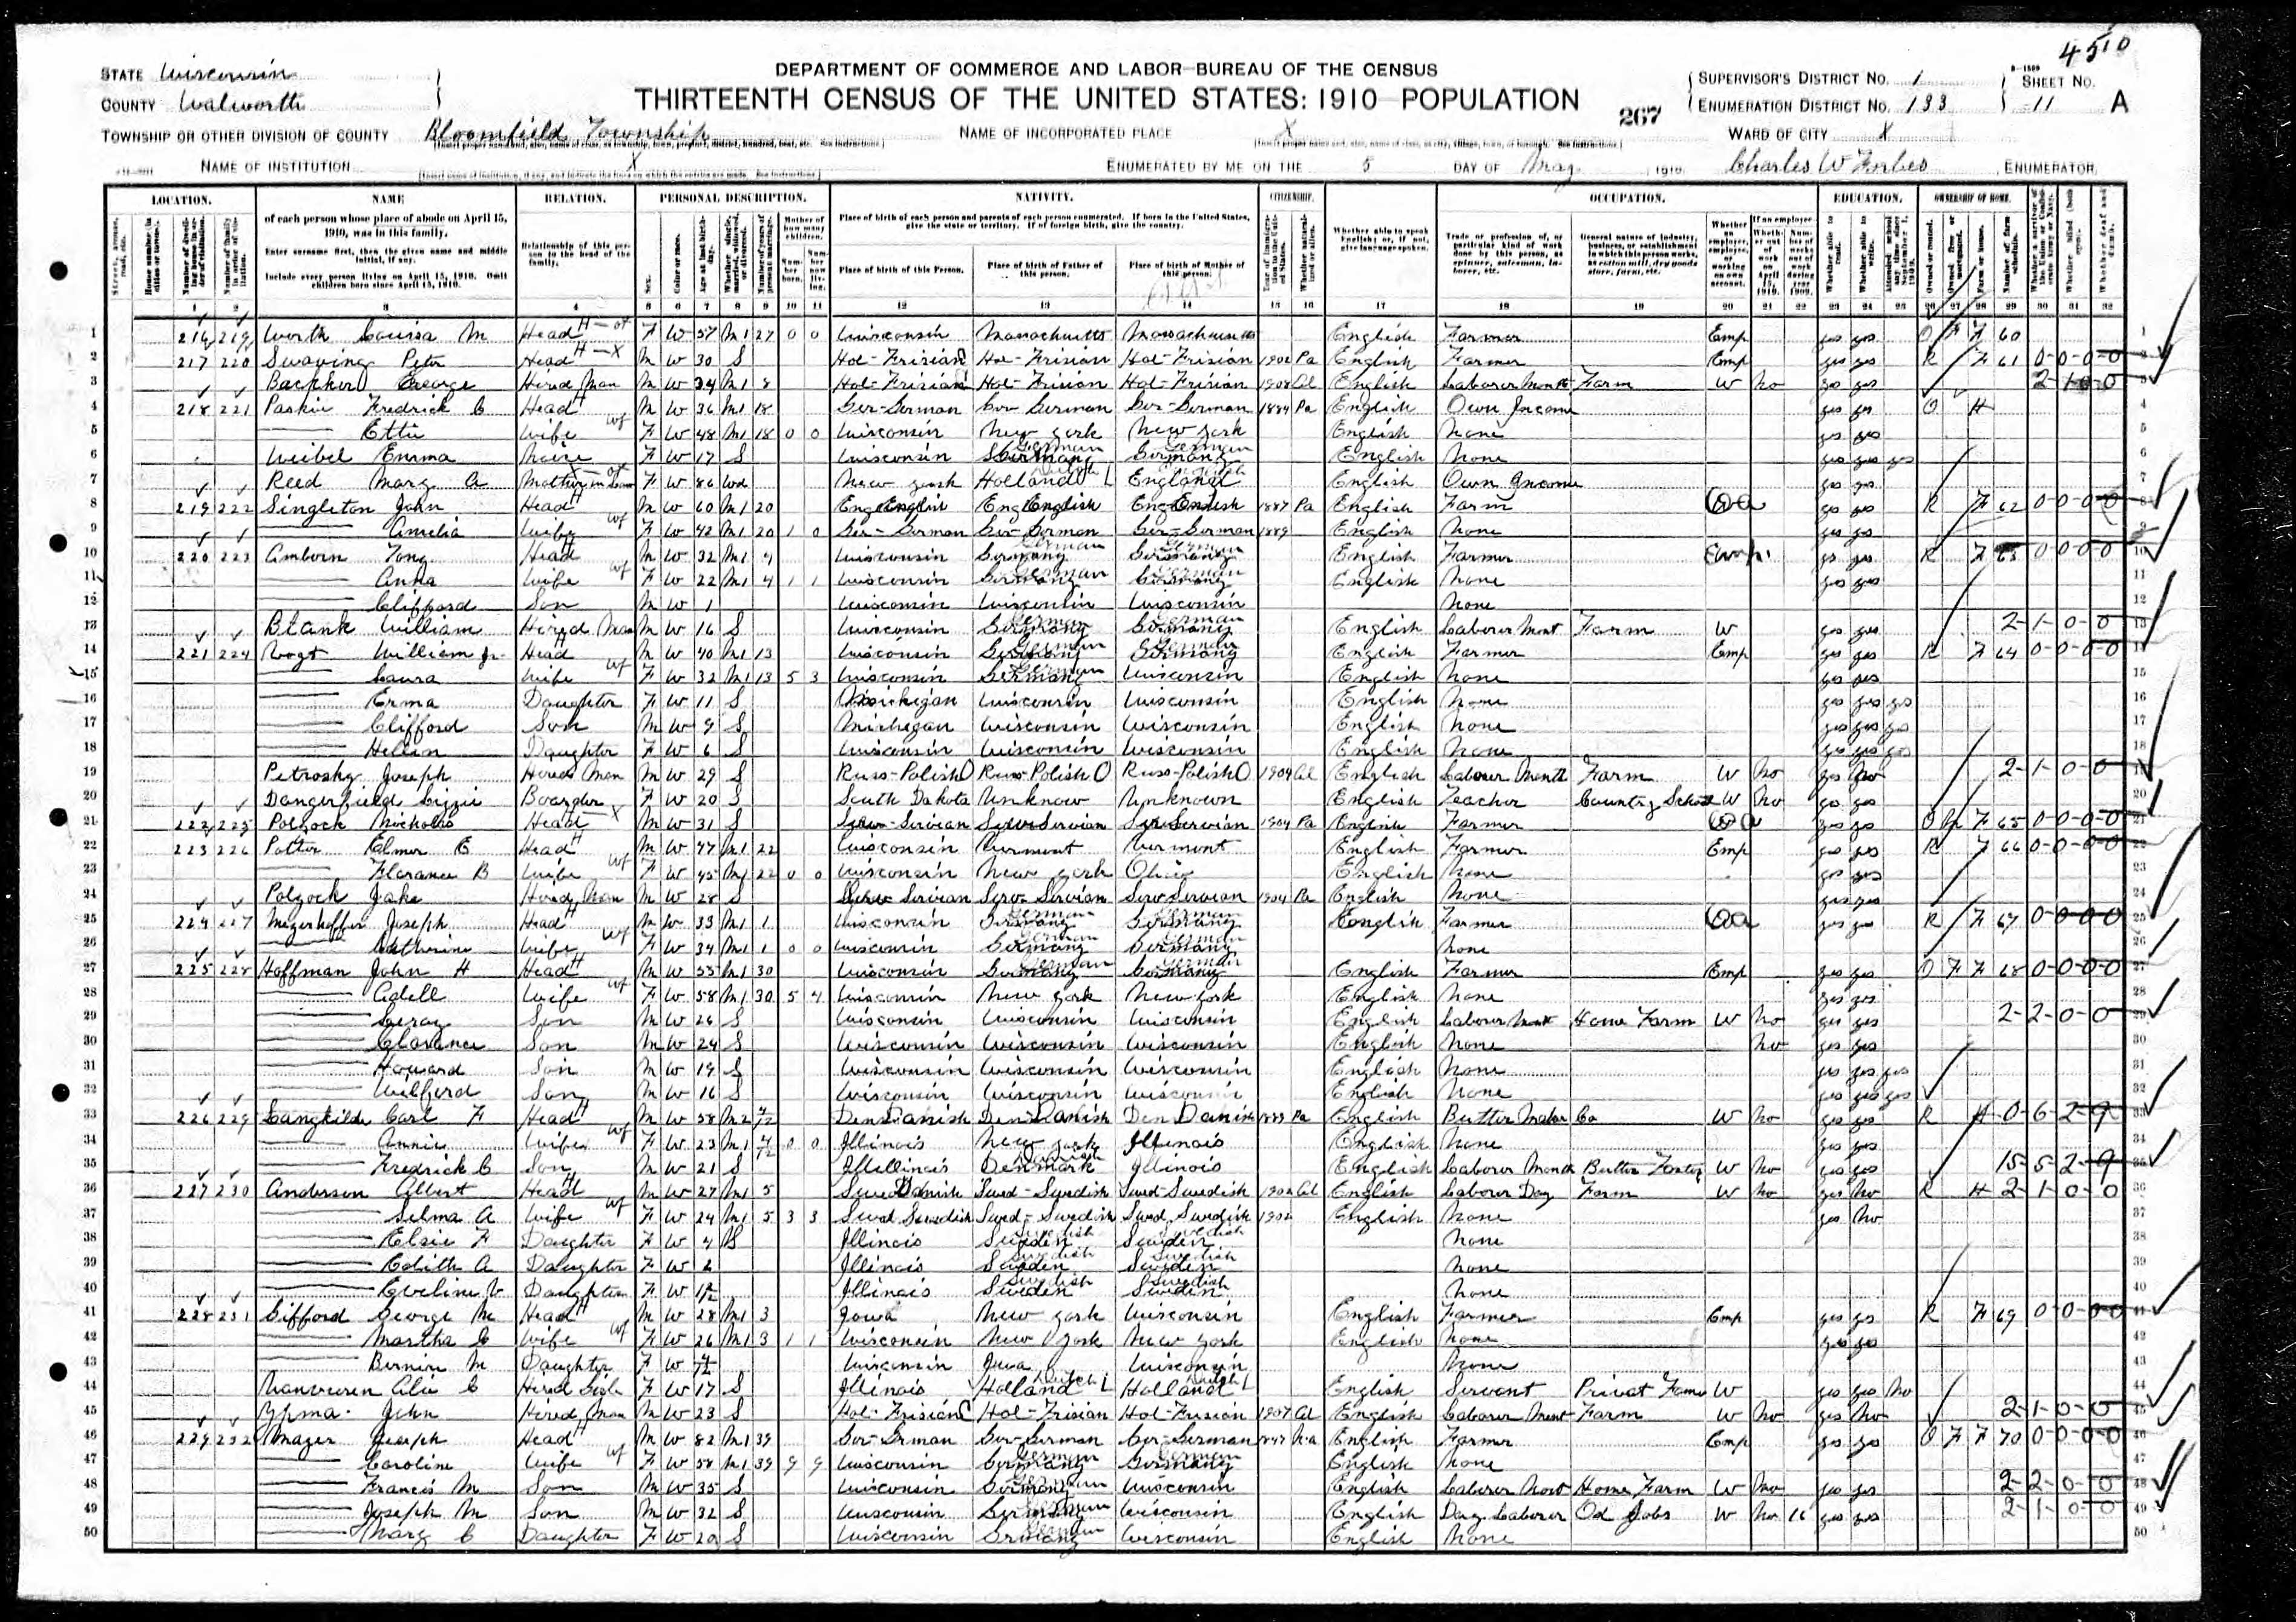 4510
STATE Wisconsin
COUNTY Walworth
DEPARTMENT OF COMMERCE AND LABOR-BUREAU OF THE CENSUS
THIRTEENTH CENSUS OF THE UNITED STATES: 1910 POPULATION
267
SUPERVISOR'S DISTRICT NO. 1
ENUMERATION DISTRICT NO. 133
SHEET NO. 11 A
TOWNSHIP OR OTHER DIVISION OF COUNTY Bloomfield Township
NAME OF INCORPORATED PLACE X
WARD OF CITY X
NAME OF INSTITUTION X
ENUMERATED BY ME ON THE 5 DAY OF May 1910 Charles W Forbes ENUMERATOR
LOCATION. NAME RELATION. PERSONAL DESCRIPTION. NATIVITY. CITIZENSHIP. OCCUPATION. EDUCATION. OWNERSHIP OF HOME.
of each person whose place of abode on April 15, 1910, was in this family.
Enter surname first, then the given name and middle initial, if any.
Include every person living on April 15, 1910. Omit children born since April 15, 1910.
Relationship of this person to the head of the family.
Place of birth of each person and parents of each person enumerated. If born in the United States, give the state or territory. If of foreign birth, give the country.
Place of birth of this Person. Place of birth of Father of this person. Place of birth of Mother of this person.
Whether able to speak English; or, if not, give language spoken.
1 216 219 Worth Louisa M Head F W 57 M1 27 0 0 Wisconsin Massachusetts Massachusetts English Farmer Emp yes yes O F F 60
2 217 220 Swaving Peter Head M W 30 S Hol-Frisian Hol-Frisian Hol-Frisian 1902 Pa English Farmer Emp yes yes R F 61 0-0-0-0
3 George Hired Man M W M1 8 Hol-Frisian Hol-Frisian Hol-Frisian 1908 Al English Laborer Month Farm W no yes yes 2-1-0-0
4 218 221 Fredrick C Head M W 36 M1 18 Ger-German Ger German Ger-German 1884 Pa English Own Income yes yes O H
5 Ettie Wife F W 48 M1 18 0 0 Wisconsin New York New York English None yes yes
6 Weibel Emma Neice F W 17 S Wisconsin Germany German Germany German English None yes yes yes
7 Reed Mary A Mother in Law F W 86 Wd New York Holland Dutch England English English Own Income yes yes
8 219 222 Singleton John Head M W 60 M1 20 Eng English Eng English Eng English 1887 Pa English Farm Oa yes yes R F 62 0-0-0-0
9 Amelia Wife F W 42 M1 20 1 0 Ger-German Ger-German Ger-German 1889 English None yes yes
10 220 223 Amborn Tony Head M W 32 M1 4 Wisconsin Germany German Germany German English Farmer Emp. yes yes R F 63 0-0-0-0
11 Anna Wife F W 22 M1 4 1 1 Wisconsin Germany German Germany German English None yes yes
12 Clifford Son M W 1 Wisconsin Wisconsin Wisconsin None
13 Blank William Hired Man M W 16 S Wisconsin Germany German Germany German English Laborer Mont Farm W yes yes 2-1-0-0
14 221 224 Vogt William Jr Head M W 40 M1 13 Wisconsin Germany German Germany German English Farmer Emp yes yes R F 64 0-0-0-0
15 Laura Wife F W 32 M1 13 5 3 Wisconsin Germany German Wisconsin English None yes yes
16 Erma Daughter F W 11 S Michigan Wisconsin Wisconsin English None yes yes yes
17 Clifford Son M W 9 S Michigan Wisconsin Wisconsin English None yes yes yes
18 Hellen Daughter F W 6 S Wisconsin Wisconsin Wisconsin English None yes yes yes
19 Petrosky Joseph Hired Man M W 29 S Russ-Polish Russ-Polish Russ-Polish 1904 Al English Laborer Month Farm W no yes no 2-1-0-0
20 Dangerfield Lizzie Boarder F W 20 S South Dakota Unknown Unknown English Teacher Country School W no yes yes
21 222 225 Polzock Nicholas Head M W 31 S Serv-Servian Serv Servian Serv Servian 1904 Pa English Farmer Oa yes yes O F 65 0-0-0-0
22 223 226 Potter Elmer E Head M W 47 M1 22 Wisconsin Vermont Vermont English Farmer Emp yes yes R F 66 0-0-0-0
23 Florance B Wife F W 45 M1 22 0 0 Wisconsin New York Ohio English None yes yes
24 Polzock Jake Hired Man M W 28 S Serv Servian Serv-Servian Serv-Servian 1904 Pa English None yes yes
25 224 227 Joseph Head M W 33 M1 1 Wisconsin Germany German Germany German English Farmer Oa yes yes R F 67 0-0-0-0
26 Catherine Wife F W 34 M1 1 0 0 Wisconsin Germany German Germany German None
27 225 228 Hoffman John H Head M W 55 M1 30 Wisconsin Germany German Germany German English Farmer Emp yes yes O F F 68 0-0-0-0
28 Adell Wife F W 58 M1 30 5 4 Wisconsin New York New York English None yes yes
29 Leroy Son M W 26 S Wisconsin Wisconsin Wisconsin English Laborer Mont Home Farm W no yes yes 2-2-0-0
30 Clarence Son M W 24 S Wisconsin Wisconsin Wisconsin English None no yes yes
31 Howard Son M W 19 S Wisconsin Wisconsin Wisconsin English None yes yes yes
32 Wilford Son M W 16 S Wisconsin Wisconsin Wisconsin English None yes yes yes
33 226 229 Langkilde Carl F Head M W 58 M2 Den Danish Den Danish Den Danish Pa English Butter Maker Co W no yes yes R H 0-6-2-9
34 Annie Wife F W 23 M1 0 0 Illinois New York Illinois English None yes yes
35 Fredrick C Son M W 21 S Illinois Denmark Danish Illinois English Laborer Month Butter W no yes yes 15-5-2-9
36 227 230 Anderson Albert Head M W 27 M1 5 Sweed-Swedish Swed-Swedish 1902 Al English Laborer Day Farm W no yes no R H 2-1-0-0
37 Selma A Wife F W 24 M1 5 3 3 Swed Swedish Swed-Swedish Swed Swedish 1902 English None yes no
38 Elsie F Daughter F W 4 S Illinois Sweden Swedish Sweden Swedish None
39 Edith A Daughter F W 2 Illinois Sweden Swedish Sweden Swedish None
40 Eveline V Daughter F W Illinois Sweden Swedish Sweden Swedish None
41 228 231 Gifford George M Head M W 28 M1 3 Iowa New York Wisconsin English Farmer Emp yes yes R F 69 0-0-0-0
42 Martha C Wife F W 26 M1 3 1 1 Wisconsin New York New York English None yes yes
43 M Daughter F W Wisconsin Iowa Wisconsin None
44 C Hired Girl F W 17 S Illinois Holland Dutch Holland Dutch English Servant Privat W yes yes no
45 Ypma John Hired Man M W 23 S Hol-Frisian Hol-Frisian Hol-Frisian 1907 Al English Laborer Mont Farm W no yes no 2-1-0-0
46 229 232 Mayer Joseph Head M W 82 M1 39 Ger-German Ger-German Ger-German 1847 Na English Farmer Emp yes yes O F F 70 0-0-0-0
47 Caroline Wife F W 58 M1 39 9 9 Wisconsin Germany German Germany German English None
48 Francis M Son M W 35 S Wisconsin Germany German Wisconsin English Laborer Mont Home Farm W no yes yes 2-2-0-0
49 Joseph M Son M W 32 S Wisconsin Germany German Wisconsin English Day Laborer Od Jobs W no 16 yes yes 2-1-0-0
50 Mary C Daughter F W 20 S Wisconsin Germany German Wisconsin English None